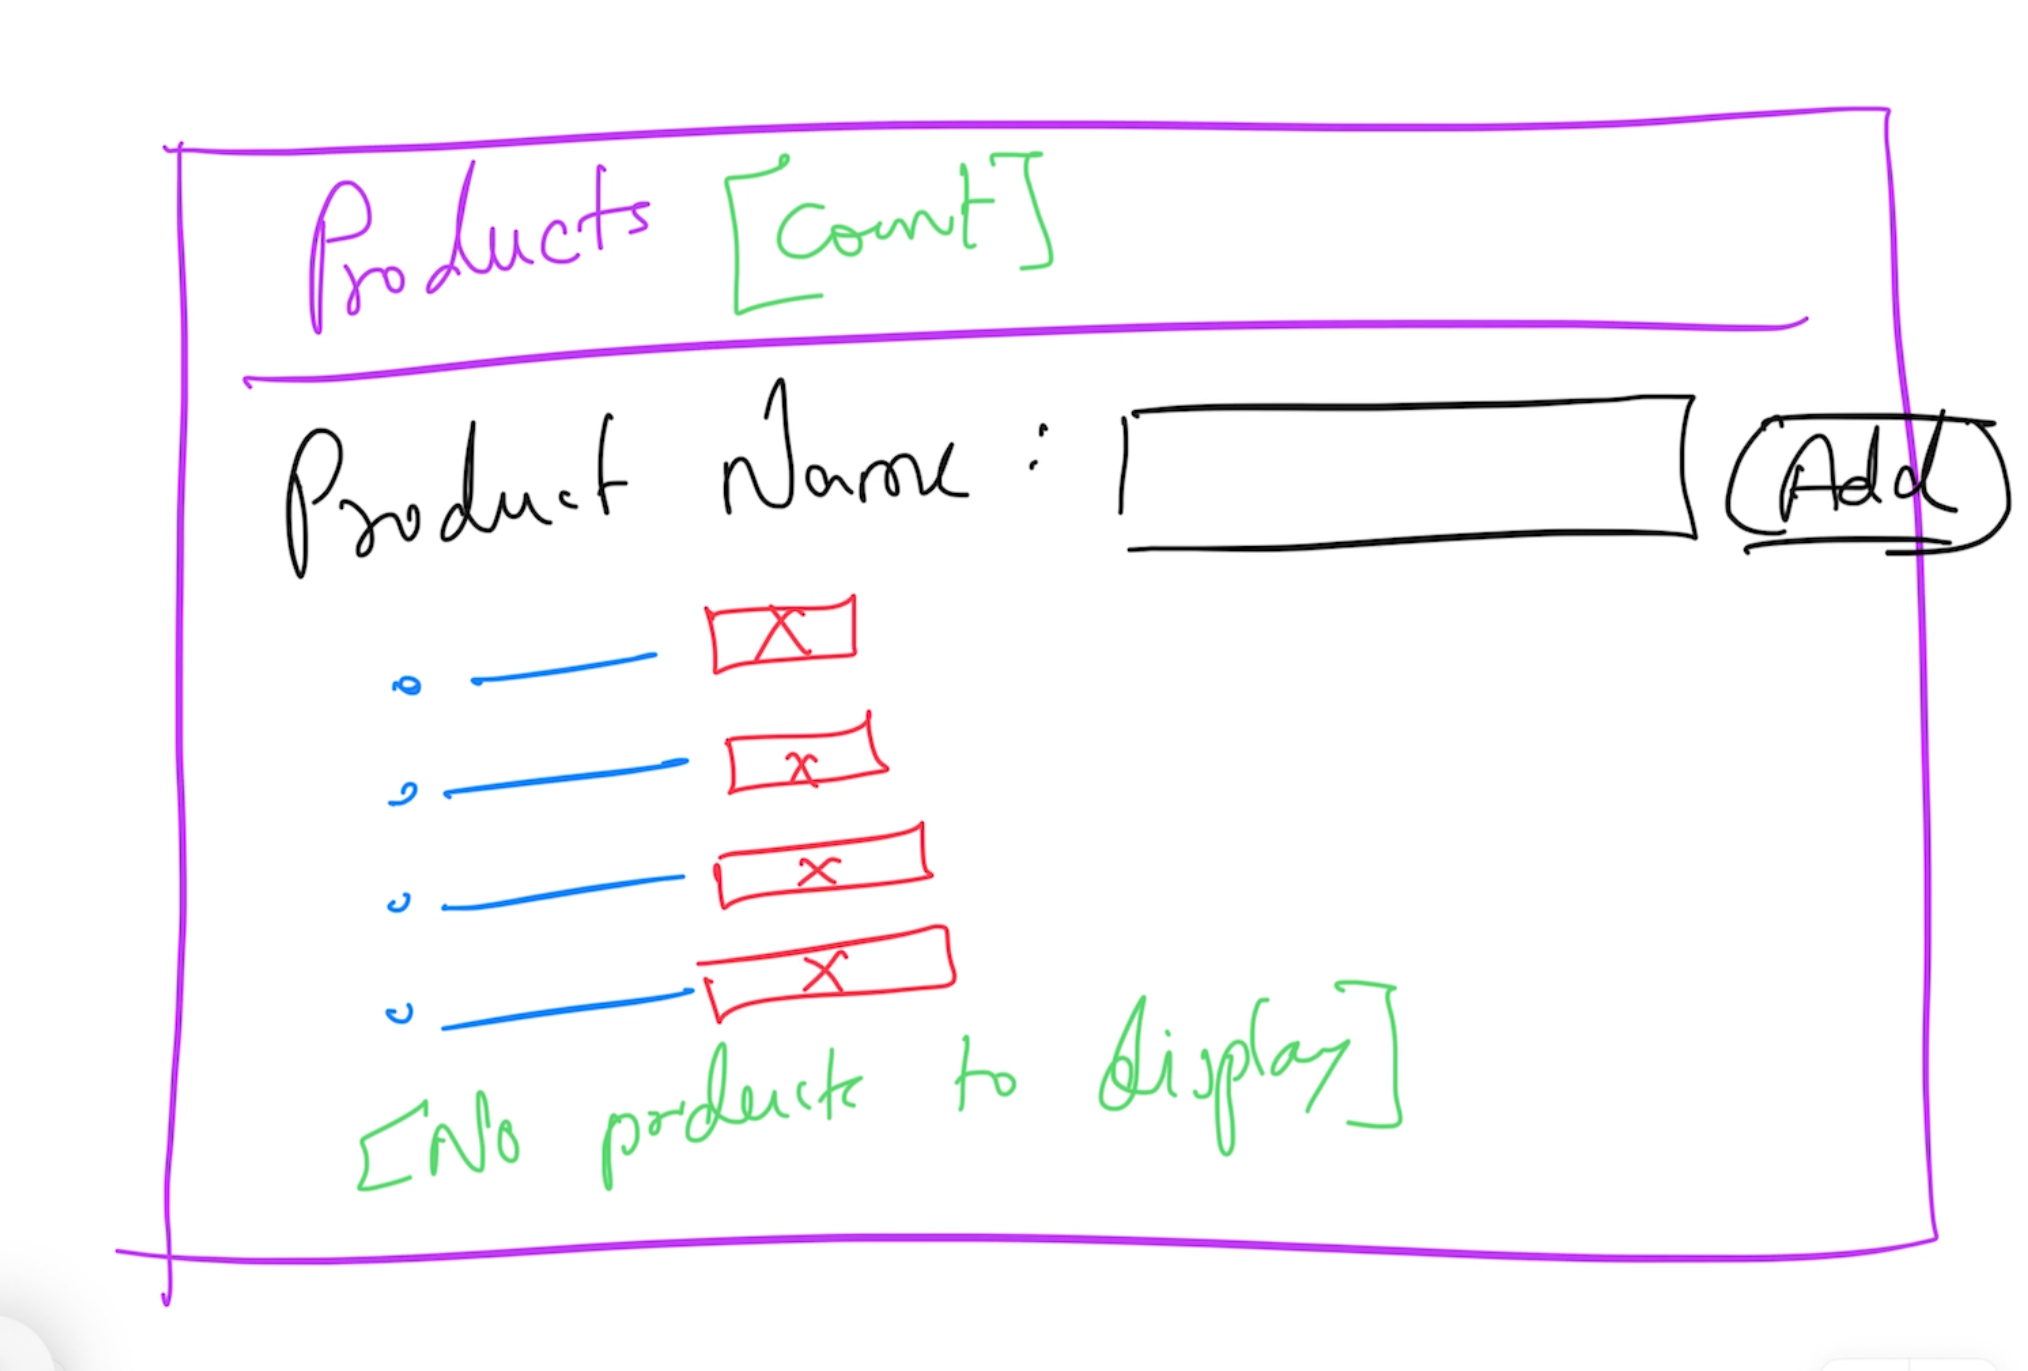 Products [Count]
Product Name : Add
X
X
X
X
[No products to display]